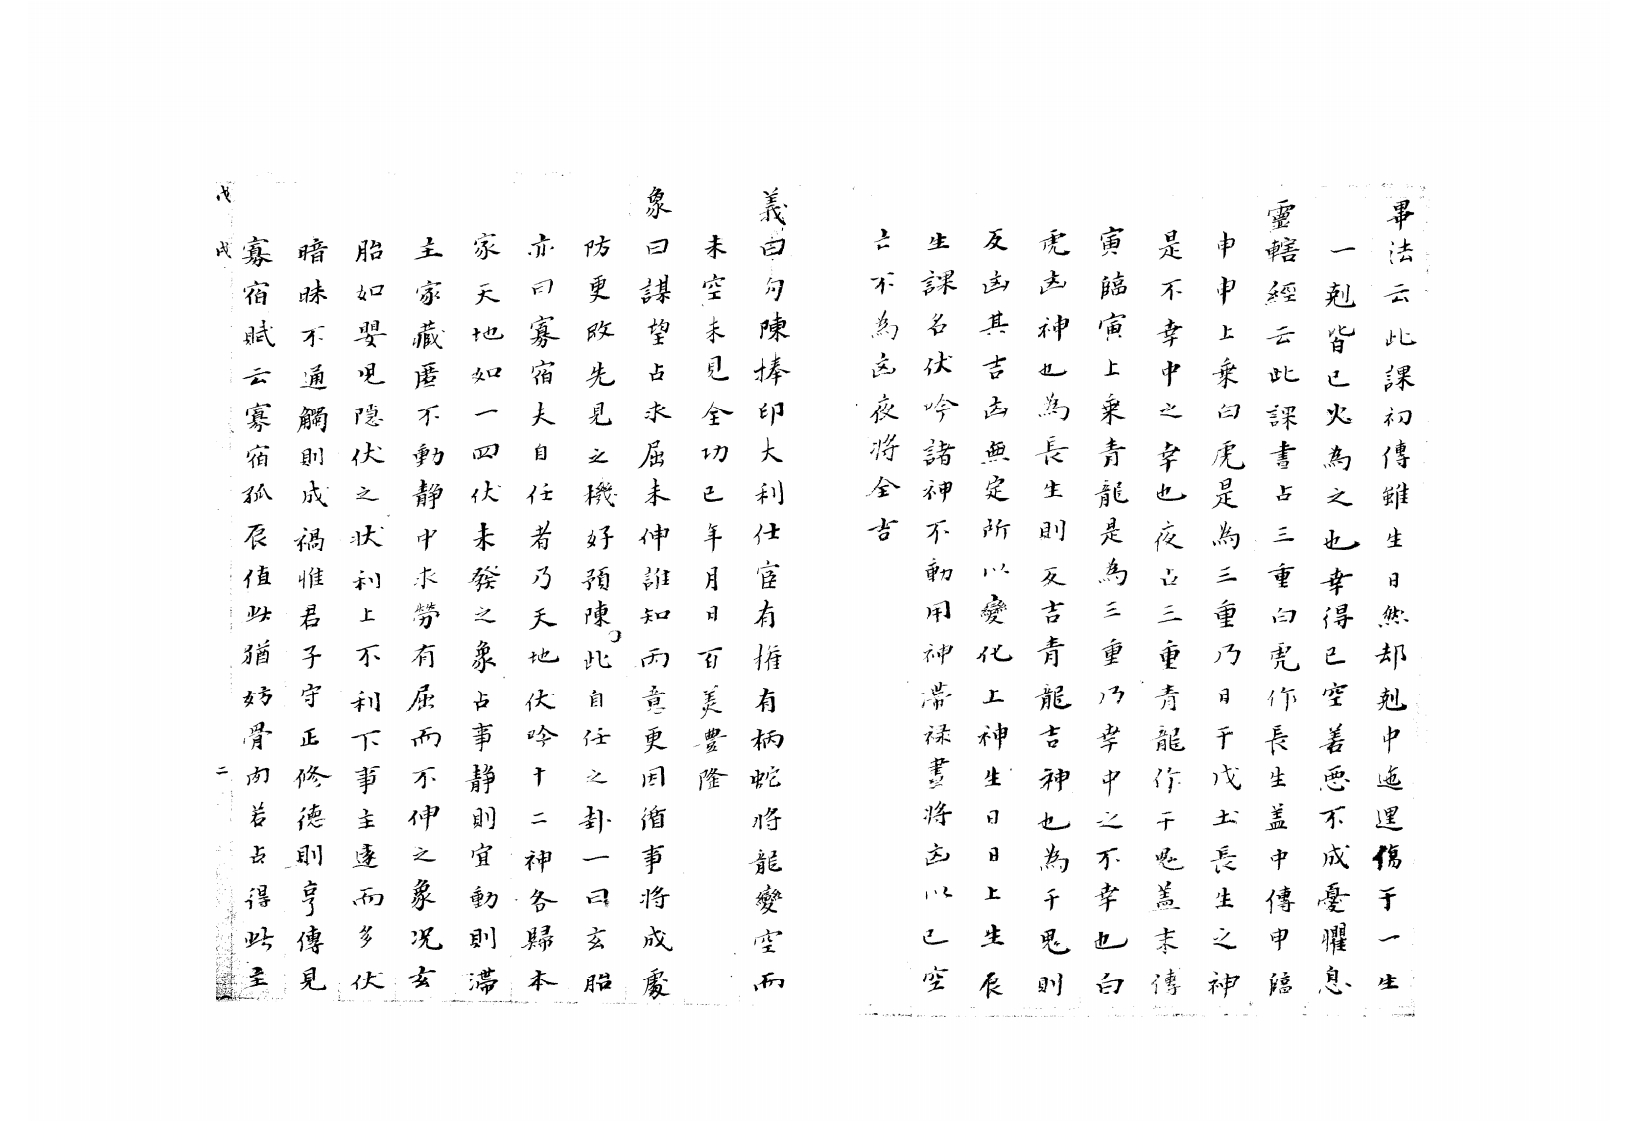 畢法云此課初傳雖生日然却剋中迤逞傷于一生
一剋皆巳火為之也幸得已空善惡不成憂懼息
靈轄經云此課晝占三重白虎作長生盖中傳申臨
申申上乗白虎是為三重乃日干戊土長生之神
是不幸中之幸也夜占三重青龍作干鬼盖末傳
寅臨寅寅上乗青龍是為三重乃幸中之不幸也白
虎凶神也為長生則反吉青龍吉神也為干鬼則
反凶其吉凶無定所以變化上神生日日上生辰
生課名伏吟諸神不動用神滯禄晝将凶以已空
亡不為凶夜将全吉
義曰勾陳捧印大利仕宦有權有柄蛇将龍變空而
未空未見全功巳年月日百美豐隆
象曰謀望占求屈未伸誰知兩意更因循事将成處
防更改先見之機好預陳此自任之卦一曰玄胎
亦曰寡宿夫自任者乃天地伏吟十二神各歸本
家天地如一四伏未發之象占事静則宜動則滯
主家藏匿不動静中求勞有屈而不伸之象况玄
胎如嬰児隠伏之状利上不利下事主遠而多伏
暗昧不通觸則成禍惟君子守正修德則亨傳見
寡宿賦云寡宿孤辰值此猶妨骨肉若占得此主
戊戌 二